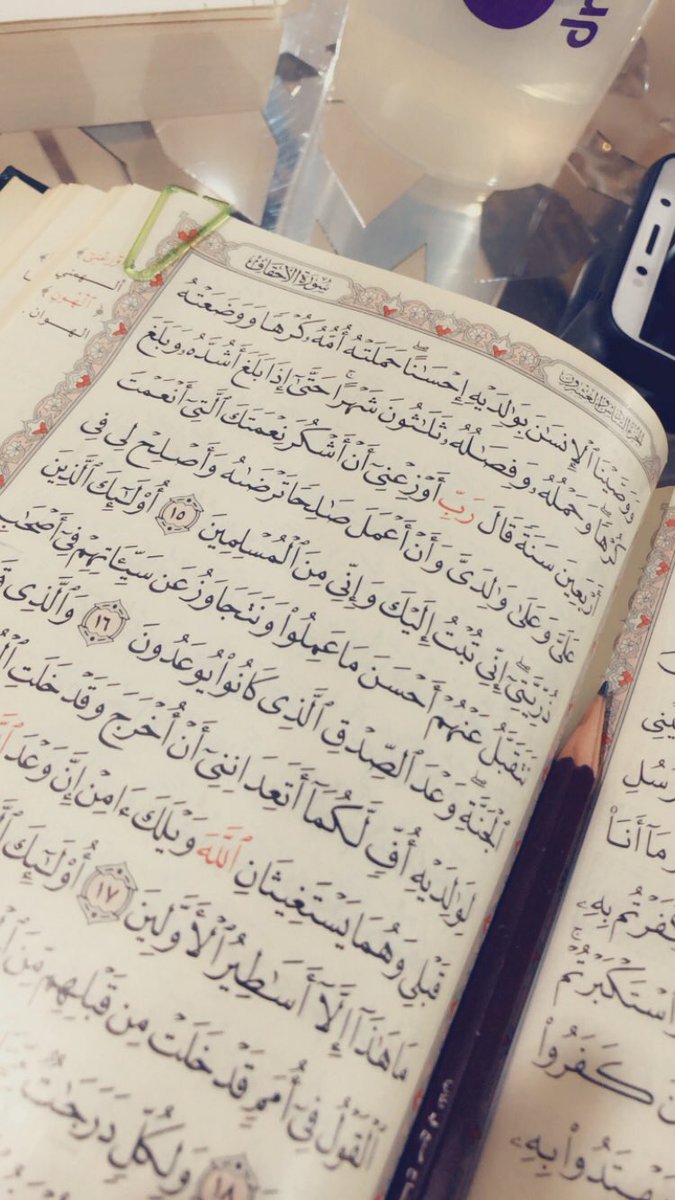 سورة الأحقاف
الجزء السادس والعشرون
وَوَصَّيْنَا ٱلْإِنسَٰنَ بِوَٰلِدَيْهِ إِحْسَٰنًا حَمَلَتْهُ أُمُّهُۥ كُرْهًا وَوَضَعَتْهُ
كُرْهًا وَحَمْلُهُۥ وَفِصَٰلُهُۥ ثَلَٰثُونَ شَهْرًا حَتَّىٰٓ إِذَا بَلَغَ أَشُدَّهُۥ وَبَلَغَ
أَرْبَعِينَ سَنَةً قَالَ رَبِّ أَوْزِعْنِىٓ أَنْ أَشْكُرَ نِعْمَتَكَ ٱلَّتِىٓ أَنْعَمْتَ
عَلَىَّ وَعَلَىٰ وَٰلِدَىَّ وَأَنْ أَعْمَلَ صَٰلِحًا تَرْضَىٰهُ وَأَصْلِحْ لِى فِى
ذُرِّيَّتِىٓ إِنِّى تُبْتُ إِلَيْكَ وَإِنِّى مِنَ ٱلْمُسْلِمِينَ ١٥ أُو۟لَٰٓئِكَ ٱلَّذِينَ
نَتَقَبَّلُ عَنْهُمْ أَحْسَنَ مَا عَمِلُوا۟ وَنَتَجَاوَزُ عَن سَيِّـَٔاتِهِمْ فِىٓ أَصْحَٰبِ
ٱلْجَنَّةِ وَعْدَ ٱلصِّدْقِ ٱلَّذِى كَانُوا۟ يُوعَدُونَ ١٦ وَٱلَّذِى
لِوَٰلِدَيْهِ أُفٍّ لَّكُمَآ أَتَعِدَانِنِىٓ أَنْ أُخْرَجَ وَقَدْ خَلَتِ
قَبْلِى وَهُمَا يَسْتَغِيثَانِ ٱللَّهَ وَيْلَكَ ءَامِنْ إِنَّ وَعْدَ
مَا هَٰذَآ إِلَّآ أَسَٰطِيرُ ٱلْأَوَّلِينَ ١٧ أُو۟لَٰٓئِكَ
ٱلْقَوْلُ فِىٓ أُمَمٍ قَدْ خَلَتْ مِن قَبْلِهِم مِّنَ
١٨ وَلِكُلٍّ دَرَجَٰتٌ
ٱلْهُونِ
الهوان.
رُسُلِ
مَآ أَنَا۠
كَفَرْتُم بِهِۦ
ٱسْتَكْبَرْتُمْ
كَفَرُوا۟
يَهْتَدُوا۟ بِهِۦ
dr